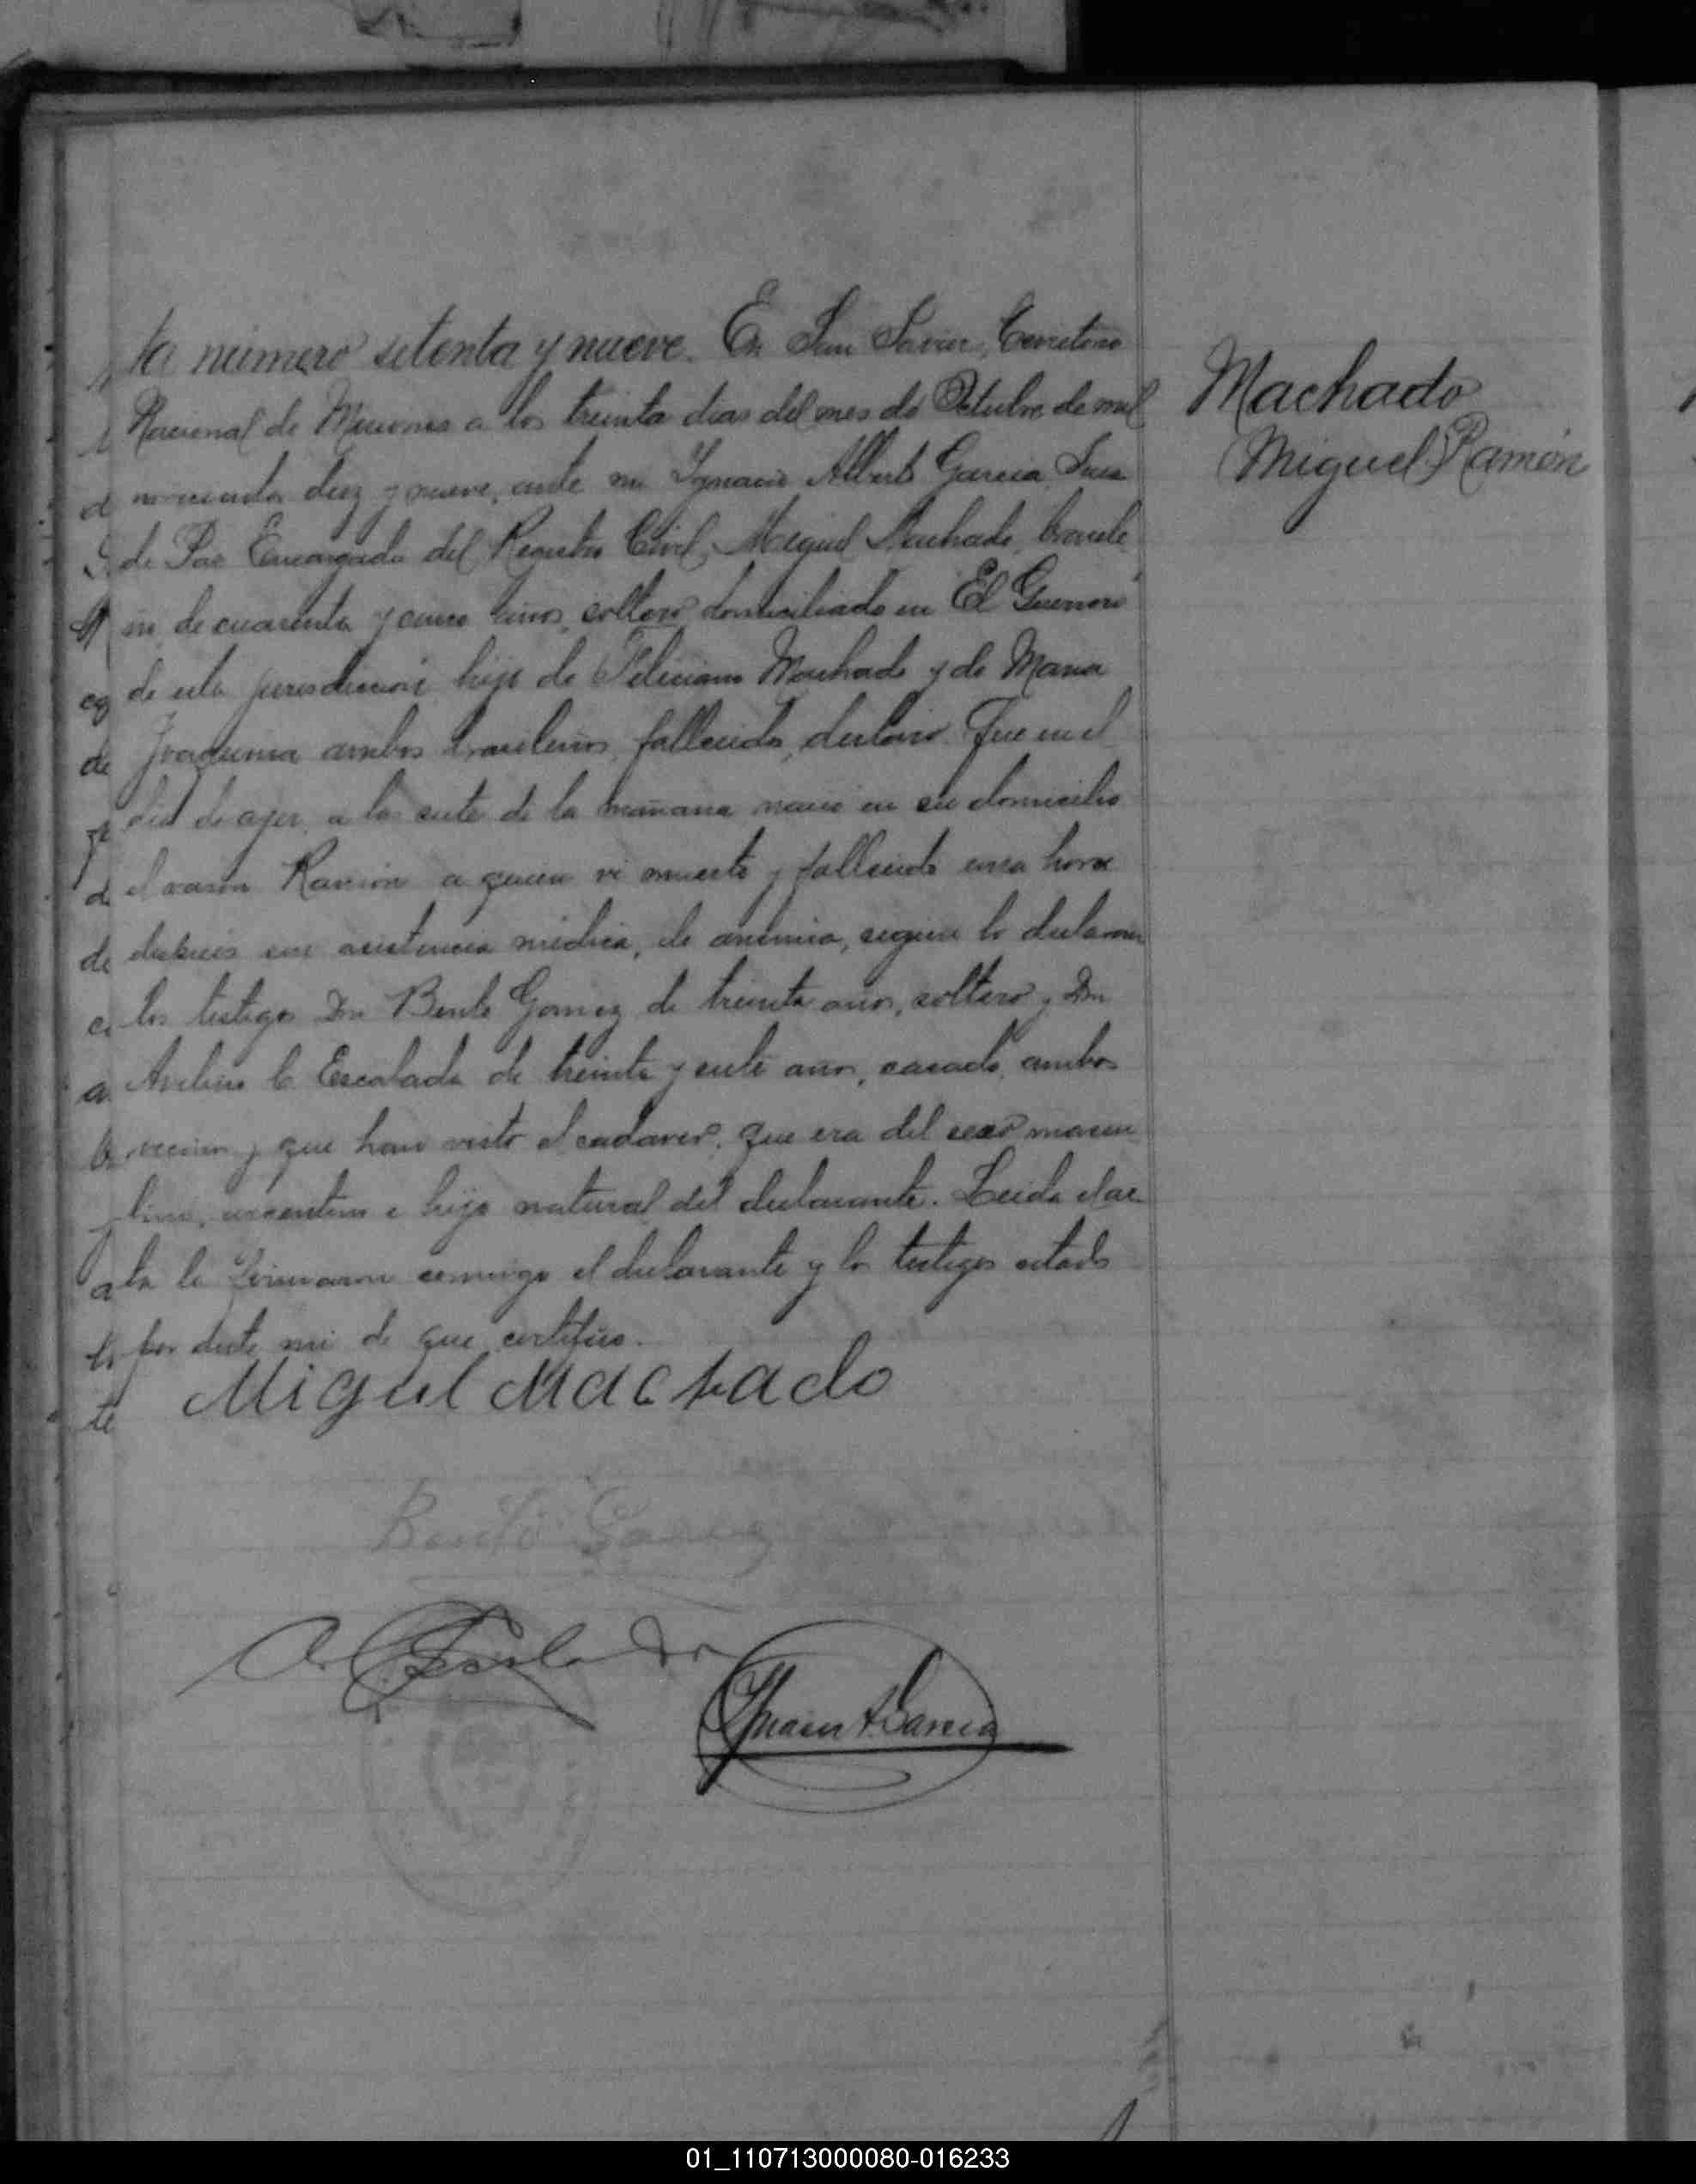 ta número setenta y nueve. En San Javier, Territorio
Nacional de Misiones a los treinta dias del mes de Octubre de mil
novecientos diez y nueve, ante mi Ygnacio Alberto Garcia Juez
de Paz Encargado del Registro Civil, Miguel Machado, brasile
ño, de cuarenta y cinco años, soltero, domiciliado en El Guerrero
de esta jurisdicción hijo de Feliciano Machado y de Maria
Joaquina ambos brasileños, fallecidos, declaró: Que en el
dia de ayer, a las siete de la mañana nació en su domicilio
el varon Ramón a quien vi muerto y fallecido una hora
despues sin asistencia médica, de anemia, segun lo declararon
los testigos Don Bento Gomez de treinta años, soltero y Don
Avelino C. Escalada de treinta y siete años, casado, ambos
vecinos y que han visto el cadaver, que era del sexo mascu
lino, argentino e hijo natural del declarante. Leida el ac
ta la firmaron conmigo el declarante y los testigos citados
por ante mi de que certifico.
Miguel Machado
Bento Gomez
A. C. Escalada
Ygnacio A. Garcia
Machado
Miguel Ramón
d
de
de
a
te
01_110713000080-016233